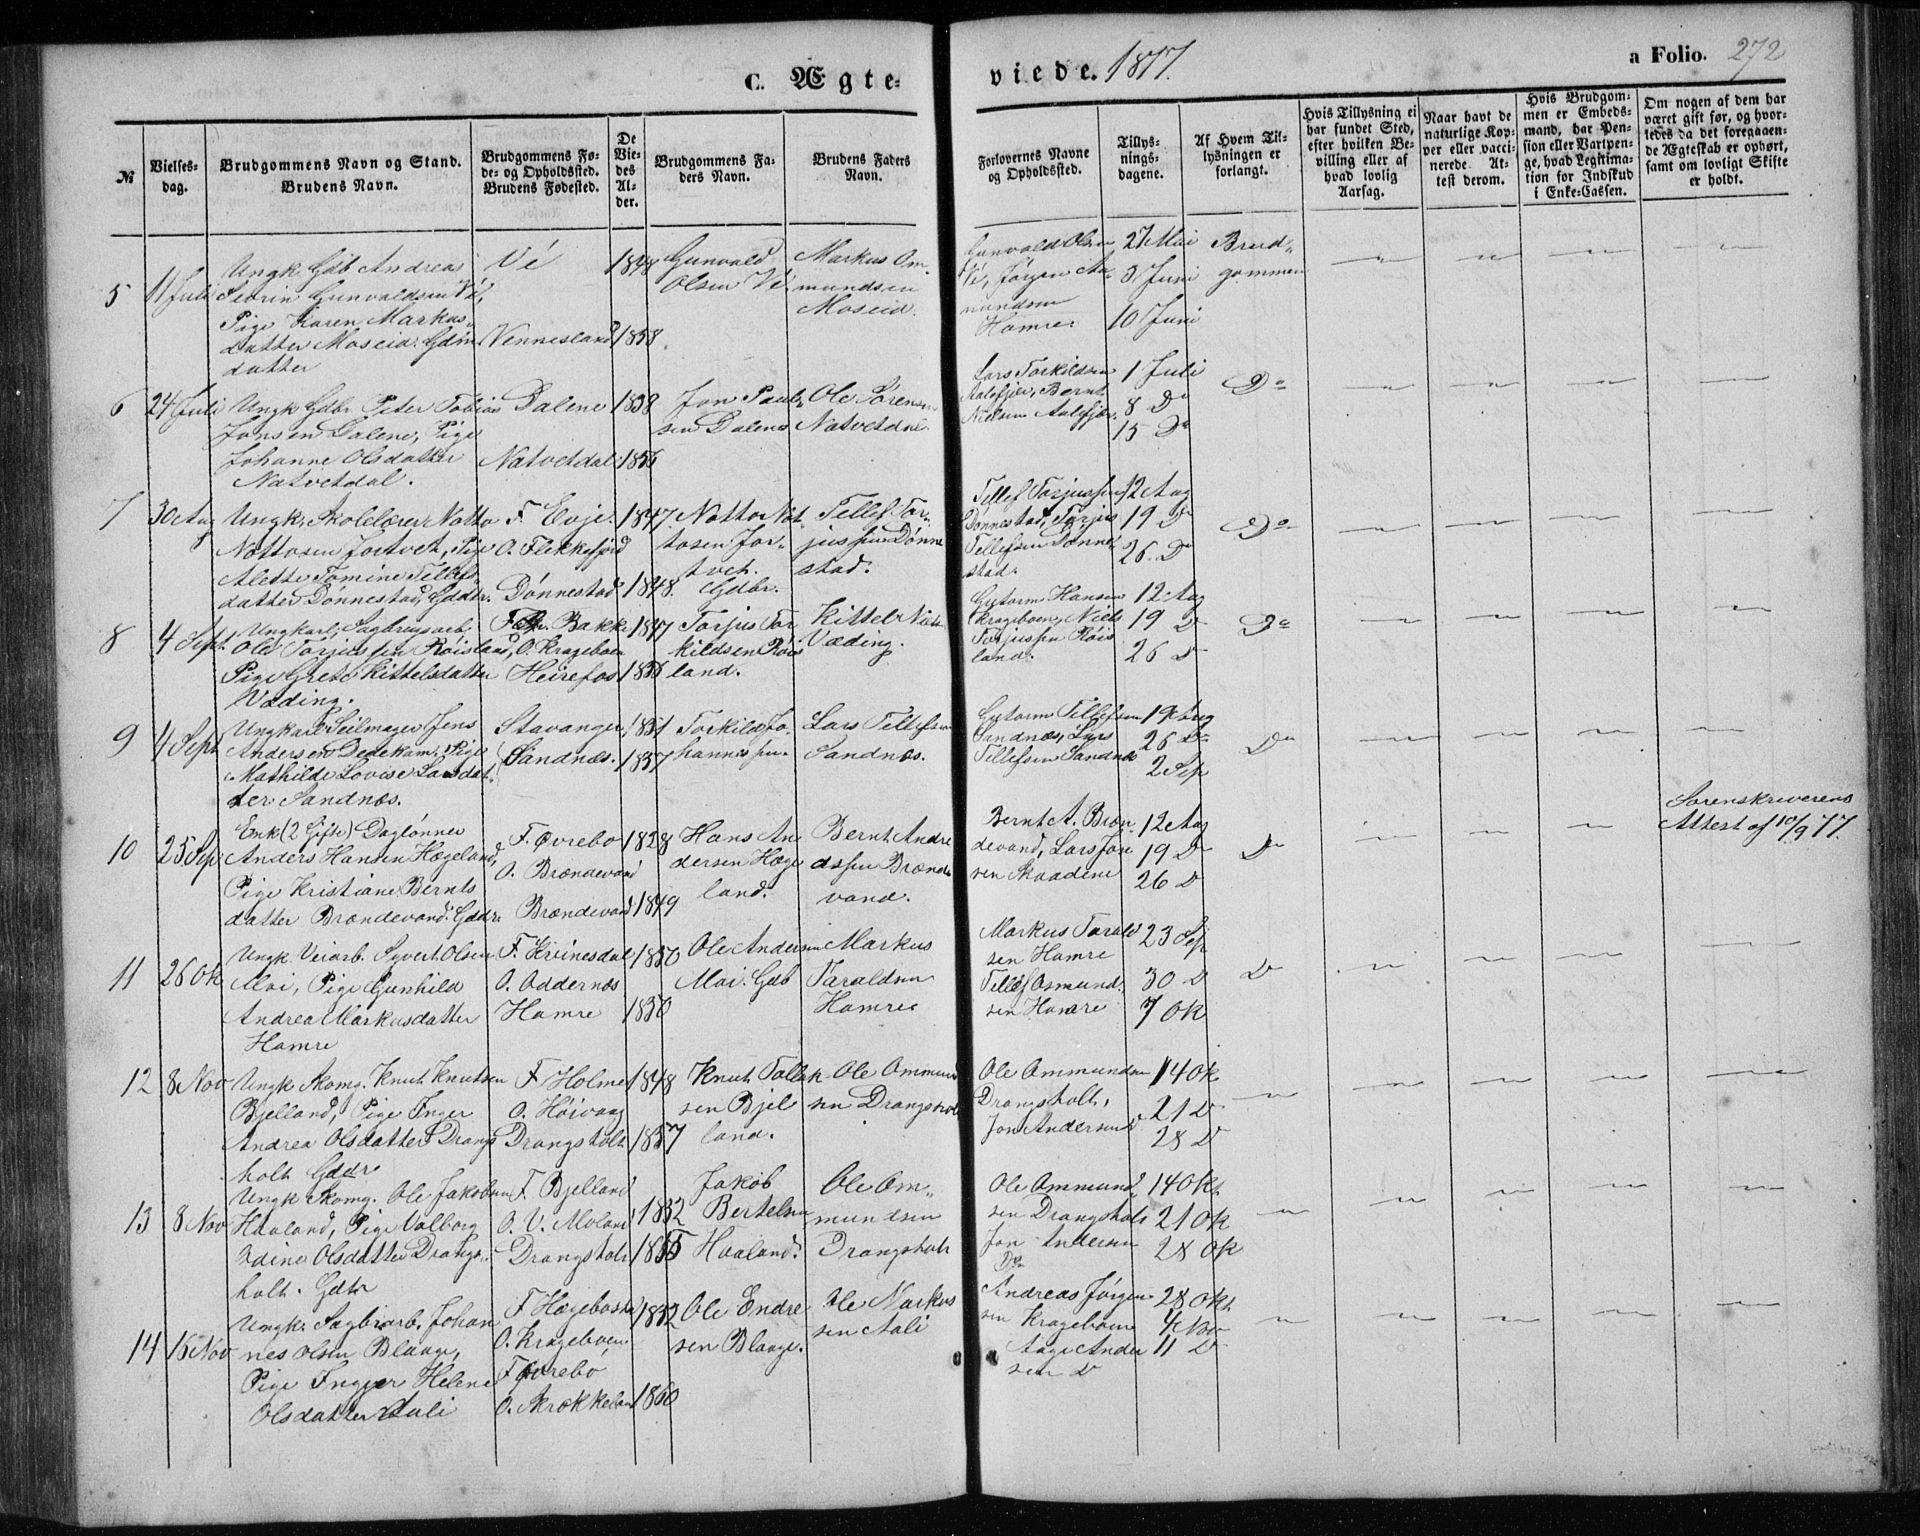 C. Ægte-
viede. 1877.
a Folio. 272
№
Vielses-
dag.
Brudgommens Navn og Stand.
Brudens Navn.
Brudgommens Fø-
de- og Opholdssted.
Brudens Fødested.
De
Vie-
des
Al-
der.
Brudgommens Fa-
ders Navn.
Brudens Faders
Navn.
Forlovernes Navne
og Opholdssted.
Tillys-
nings-
dagene.
Af Hvem Til-
lysningen er
forlangt.
Hvis Tillysning ei
har fundet Sted,
efter hvilken Be-
villing eller af
hvad lovlig
Aarsag.
Naar havt de
naturlige Kop-
per eller vacci-
nerede. At-
test derom.
Hvis Brudgom-
men er Embeds-
mand, har Pen-
sion eller Vartpen-
ge, hvad Legitima-
tion for Indskud
i Enke-Cassen.
Om nogen af dem har
været gift før, og hvor-
ledes da det foregaaen-
de Ægteskab er ophørt,
samt om lovligt Skifte
er holdt.
5
11 Juli
Ungk. Gdb Andreas
Severin Gunvaldsen Vé,
Pige Karen Markus-
datter Moseid. Gdm
datter
Vé
Vennesland
1848
1858
Gunvald
Olsen Vé
Markus Om-
mundsen
Moseid.
Gunvald Olsen
Vé, Jørgen Aa-
mundsen
Hamre
27 Mai
3 Juni
10 Juni
Brud-
gommen
6
24 Juli
Ungk. Gdbr. Peter Tobias
Jonsen Dalene, Pige
Johanne Olsdatter
Natvetdal.
Dalene
Natvetdal
1838
1856
Jon Paul-
sen Dalene
Ole Sørensen
Natvetdal
Lars Torkildsen
Aalefjær, Bernt
Nielsen Aalefjær.
1 Juli
8 Do
15 Do
Do
7
30 Aug
Ungk. Skolelærer Notto
Nottosen Jortvet, Pige
Alette Tomine Tellefs-
datter Dønnestad, Gddtr.
F. Evje.
O. Flekkefjord
Dønnestad
1847
1848.
Notto Not-
tosen Jor-
tvet.
Gdbr.
Tellef Tor-
jussen Dønne
stad.
Tellef Torjussen
Dønnestad, Torjus
Tellefsen Dønne-
stad.
12 Aug
19 D
26 D
Do
8
4 Sept.
Ungkarl, Sagbrugsarb.
Ole Torjussen Røisland,
Pige Grete Kittelsdatter
Væding.
Bakke
O. Krageboen
Heirefos
1847
1856
Torjus Tor
kildsen Røis
land.
Kittel Niels
Væding.
Gutorm Hansen
Krageboen, Niels
Torjussen Røis
land.
12 Aug
19 D
26 D
Do
9
4 Sept
Ungkarl Seilmager Jens
Andersen Dedekam, Pige
Mathilde Lovise Larsdat-
ter Sandnæs.
Stavanger,
Sandnæs.
1851
1857
Torkild Jo-
hannessen
Lars Tellefsen
Sandnæs.
Gutorm Tellefsen
Sandnæs, Lars
Tellefsen Sandnæs
19 Aug
26 D
2 Sep
Do
10
25 Sep
Enk (2 Gifte) Daglønner
Anders Hansen Hægeland,
Pige Kristiane Bernts
datter Brændevand. Gddr.
F. Øvrebo
O. Brændevand
Brændevand
1828
1849
Hans An
dersen Hæge
land.
Bernt Andre
assen Brænde
vand.
Bernt A. Bræn-
devand, Lars Jon
sen Skaadene
12 Aug
19 D
26 D
Do
Sorenskriverens
Attest af 10/9 77.
11
26 Ok
Ungk Veiarb. Syvert Olsen
Moi, Pige Gunhild
Andrea Markusdatter
Hamre
F. Kvinesdal
O. Oddernæs
Hamre
1850
1850
Ole Andersen
Moi. Gdb
Markus
Taraldsen
Hamre
Markus Tarald
sen Hamre
Tellef Osmund-
sen Hamre
23 Sep
30 D
7 Ok
D
12
8 Nov
Ungk Skomg. Knut Knutsen
Bjelland, Pige Inger
Andrea Olsdatter Drangs
holt Gddr
F Holme
O. Høivaag
Drangsholt
1848
1857
Knut Tallak
sen Bjel
land.
Ole Ommund
sen Drangsholt
Ole Ommundsen
Drangsholt,
Jon Andersen D
14 Ok
21 D
28 D
13
8 Nov
Ungk Skomg. Ole Jakobsen
Haaland, Pige Valborg
Edine Olsdatter Drangs-
holt. Gdtr
F. Bjelland
O. V. Moland
Drangsholt
1852
1855
Jakob
Bertelsen
Haaland.
Ole Om-
mundsen
Drangsholt
Ole Ommund-
sen Drangsholt
Jon Andersen
Do
14 Okt
21 Ok
28 Ok
14
16 Nov
Ungk. Sagbrarb. Johan
nes Olsen Blaage,
Pige Ingjer Helene
Olsdatter Aali
F Hægebostad
O. Krageboen
F Øvrebo
1852
1860
Ole Endre
sen Blaage.
Ole Markus
sen Aali
Andreas Jørgen
sen Krageboen
Aage Ander
sen D
28 Okt
4 Nov
11 D